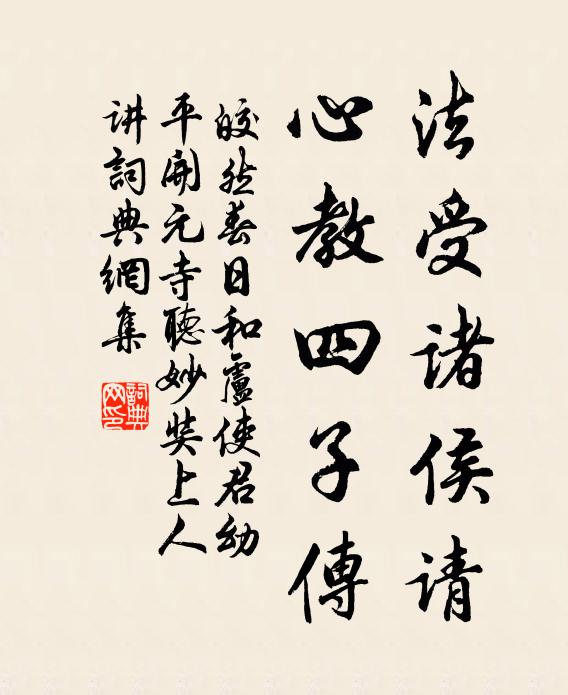 法受诸侯请
心教四子傳
皎然春日和盧使君幼
平開元寺聽妙奘上人
讲詞典網集
詞典
网印